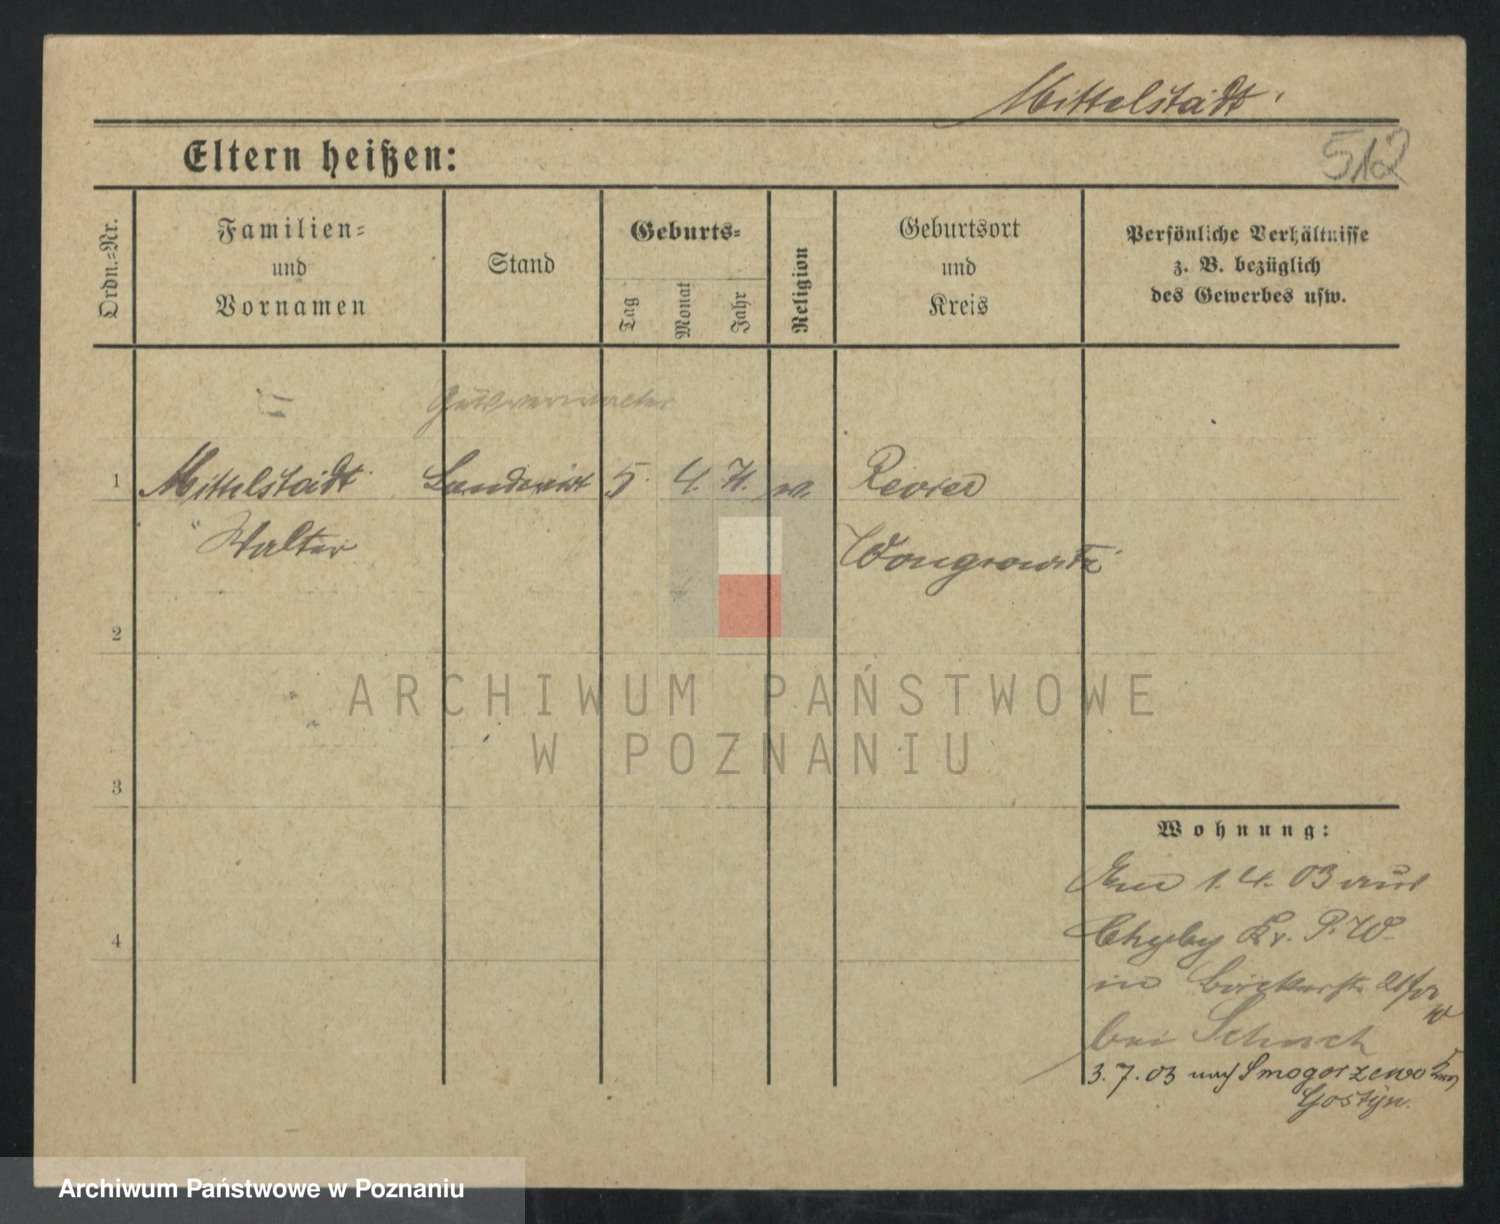 Mittelstädt
512
Eltern heißen:
Ordn.-Nr.
Familien-
und
Vornamen
Stand
Geburts-
Tag
Monat
Jahr
Religion
Geburtsort
und
Kreis
Persönliche Verhältnisse
z. B. bezüglich
des Gewerbes usw.
Gutsverwalter
1 Mittelstädt Landwirt 5. 4. Revier
Walter Wongrowitz
2
3
4
ARCHIWUM PAŃSTWOWE
W POZNANIU
Wohnung:
1. 4. 03 aus
Chyby Kr. P. W.
in Bäckerstr.
bei
3. 7. 03 nach Smogorzewo
Gostyn.
Archiwum Państwowe w Poznaniu